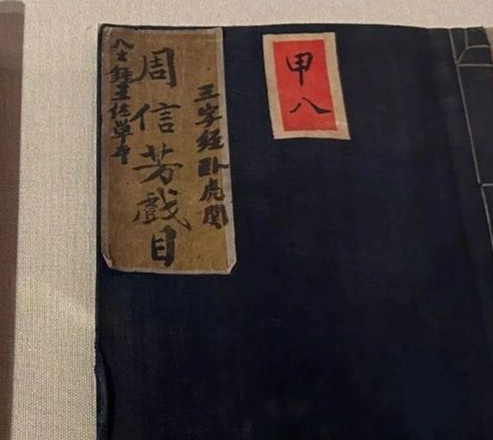 甲八
三字經卧虎関
周信芳戲目
八大錘王佐單本